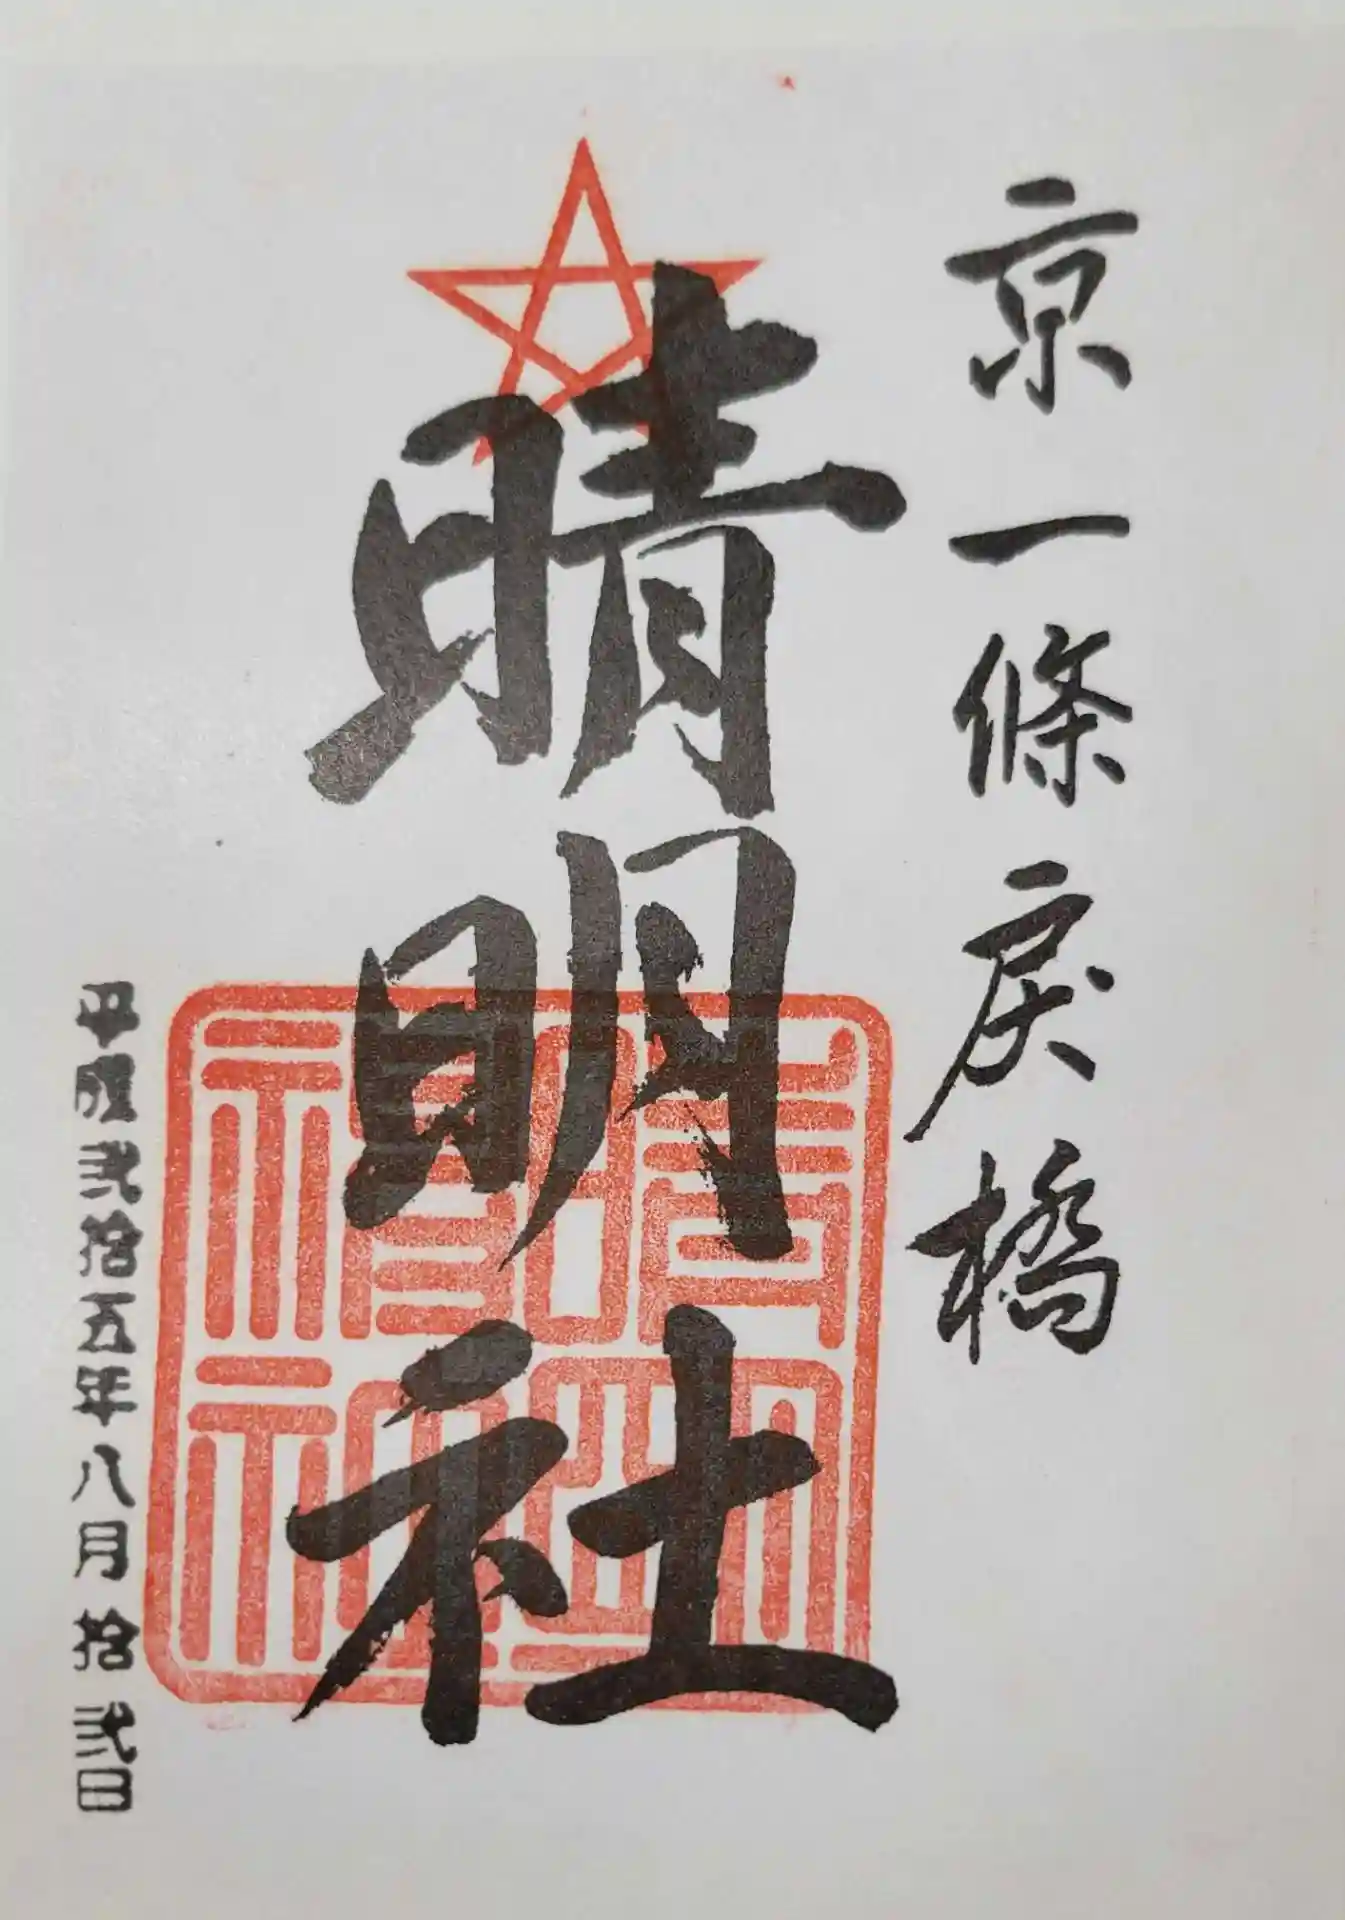 京一條戻橋
晴明社
平成弐拾五年八月拾弐日